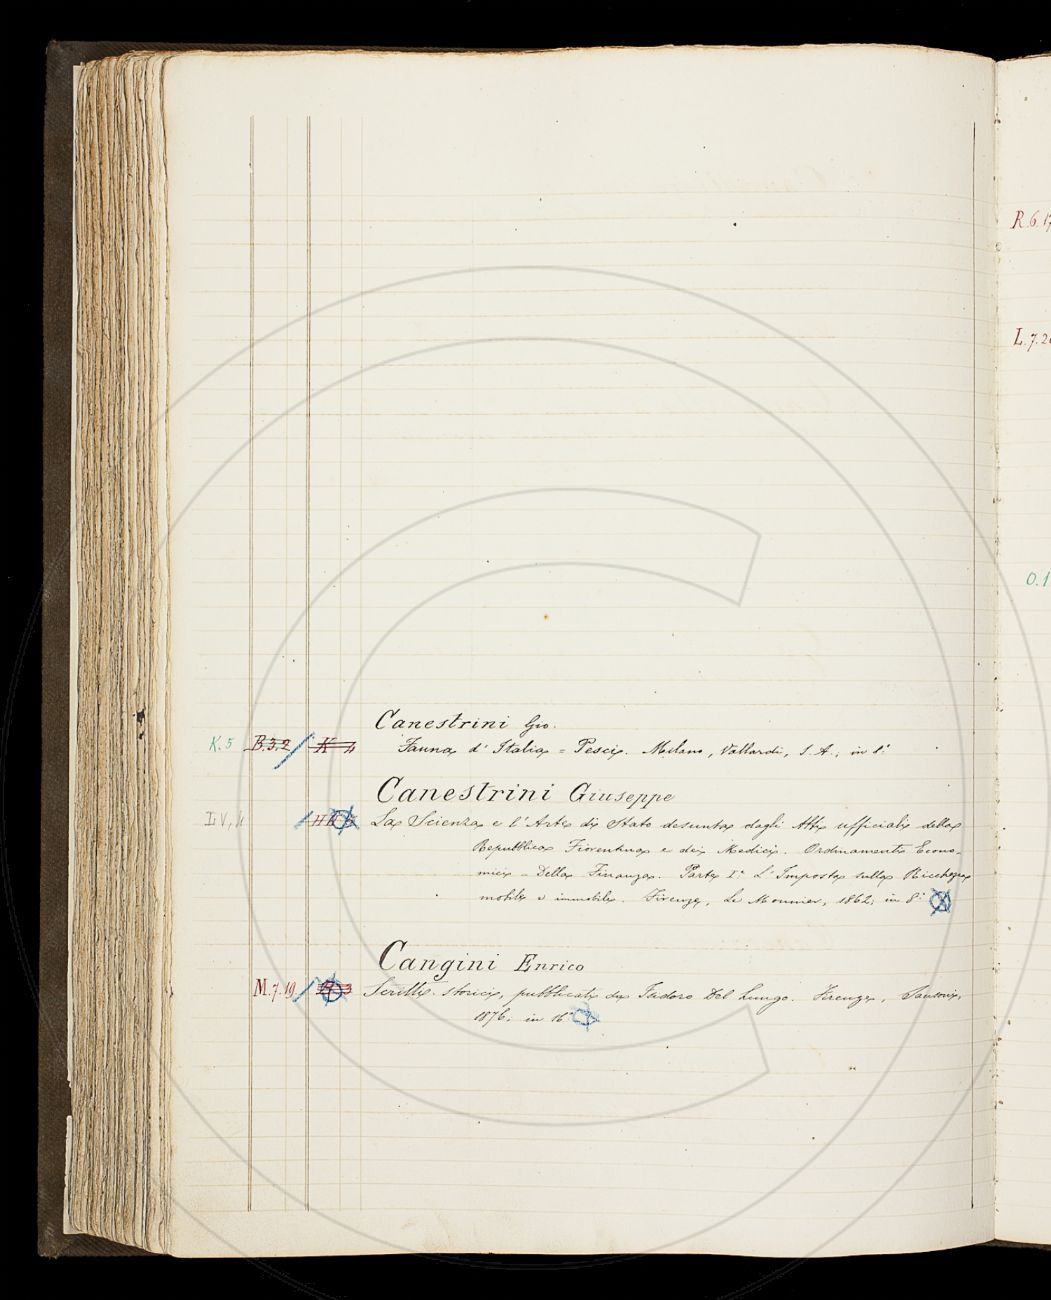 Canestrini Gio.
K. 5 B. 3. 2 K 4 Fauna d' Italia = Pesci. Milano, Vallardi, S. A., in 8°
Canestrini Giuseppe
La Scienza e l'Arte di Stato desunta dagli Atti ufficiali della
Repubblica Fiorentina e dei Medici. Ordinamenti Econo-
mici - Della Finanza. Parte I.a L'Imposta sulla Ricchezza
mobile e immobile. Firenze, Le Monnier, 1862, in 8°
Cangini Enrico
M. 7. 19 3 Scritti storici, pubblicati da Isidoro Del Lungo. Firenze, Sansoni,
1876. in 16°
R. 6. 17
L. 7. 20
O. 1